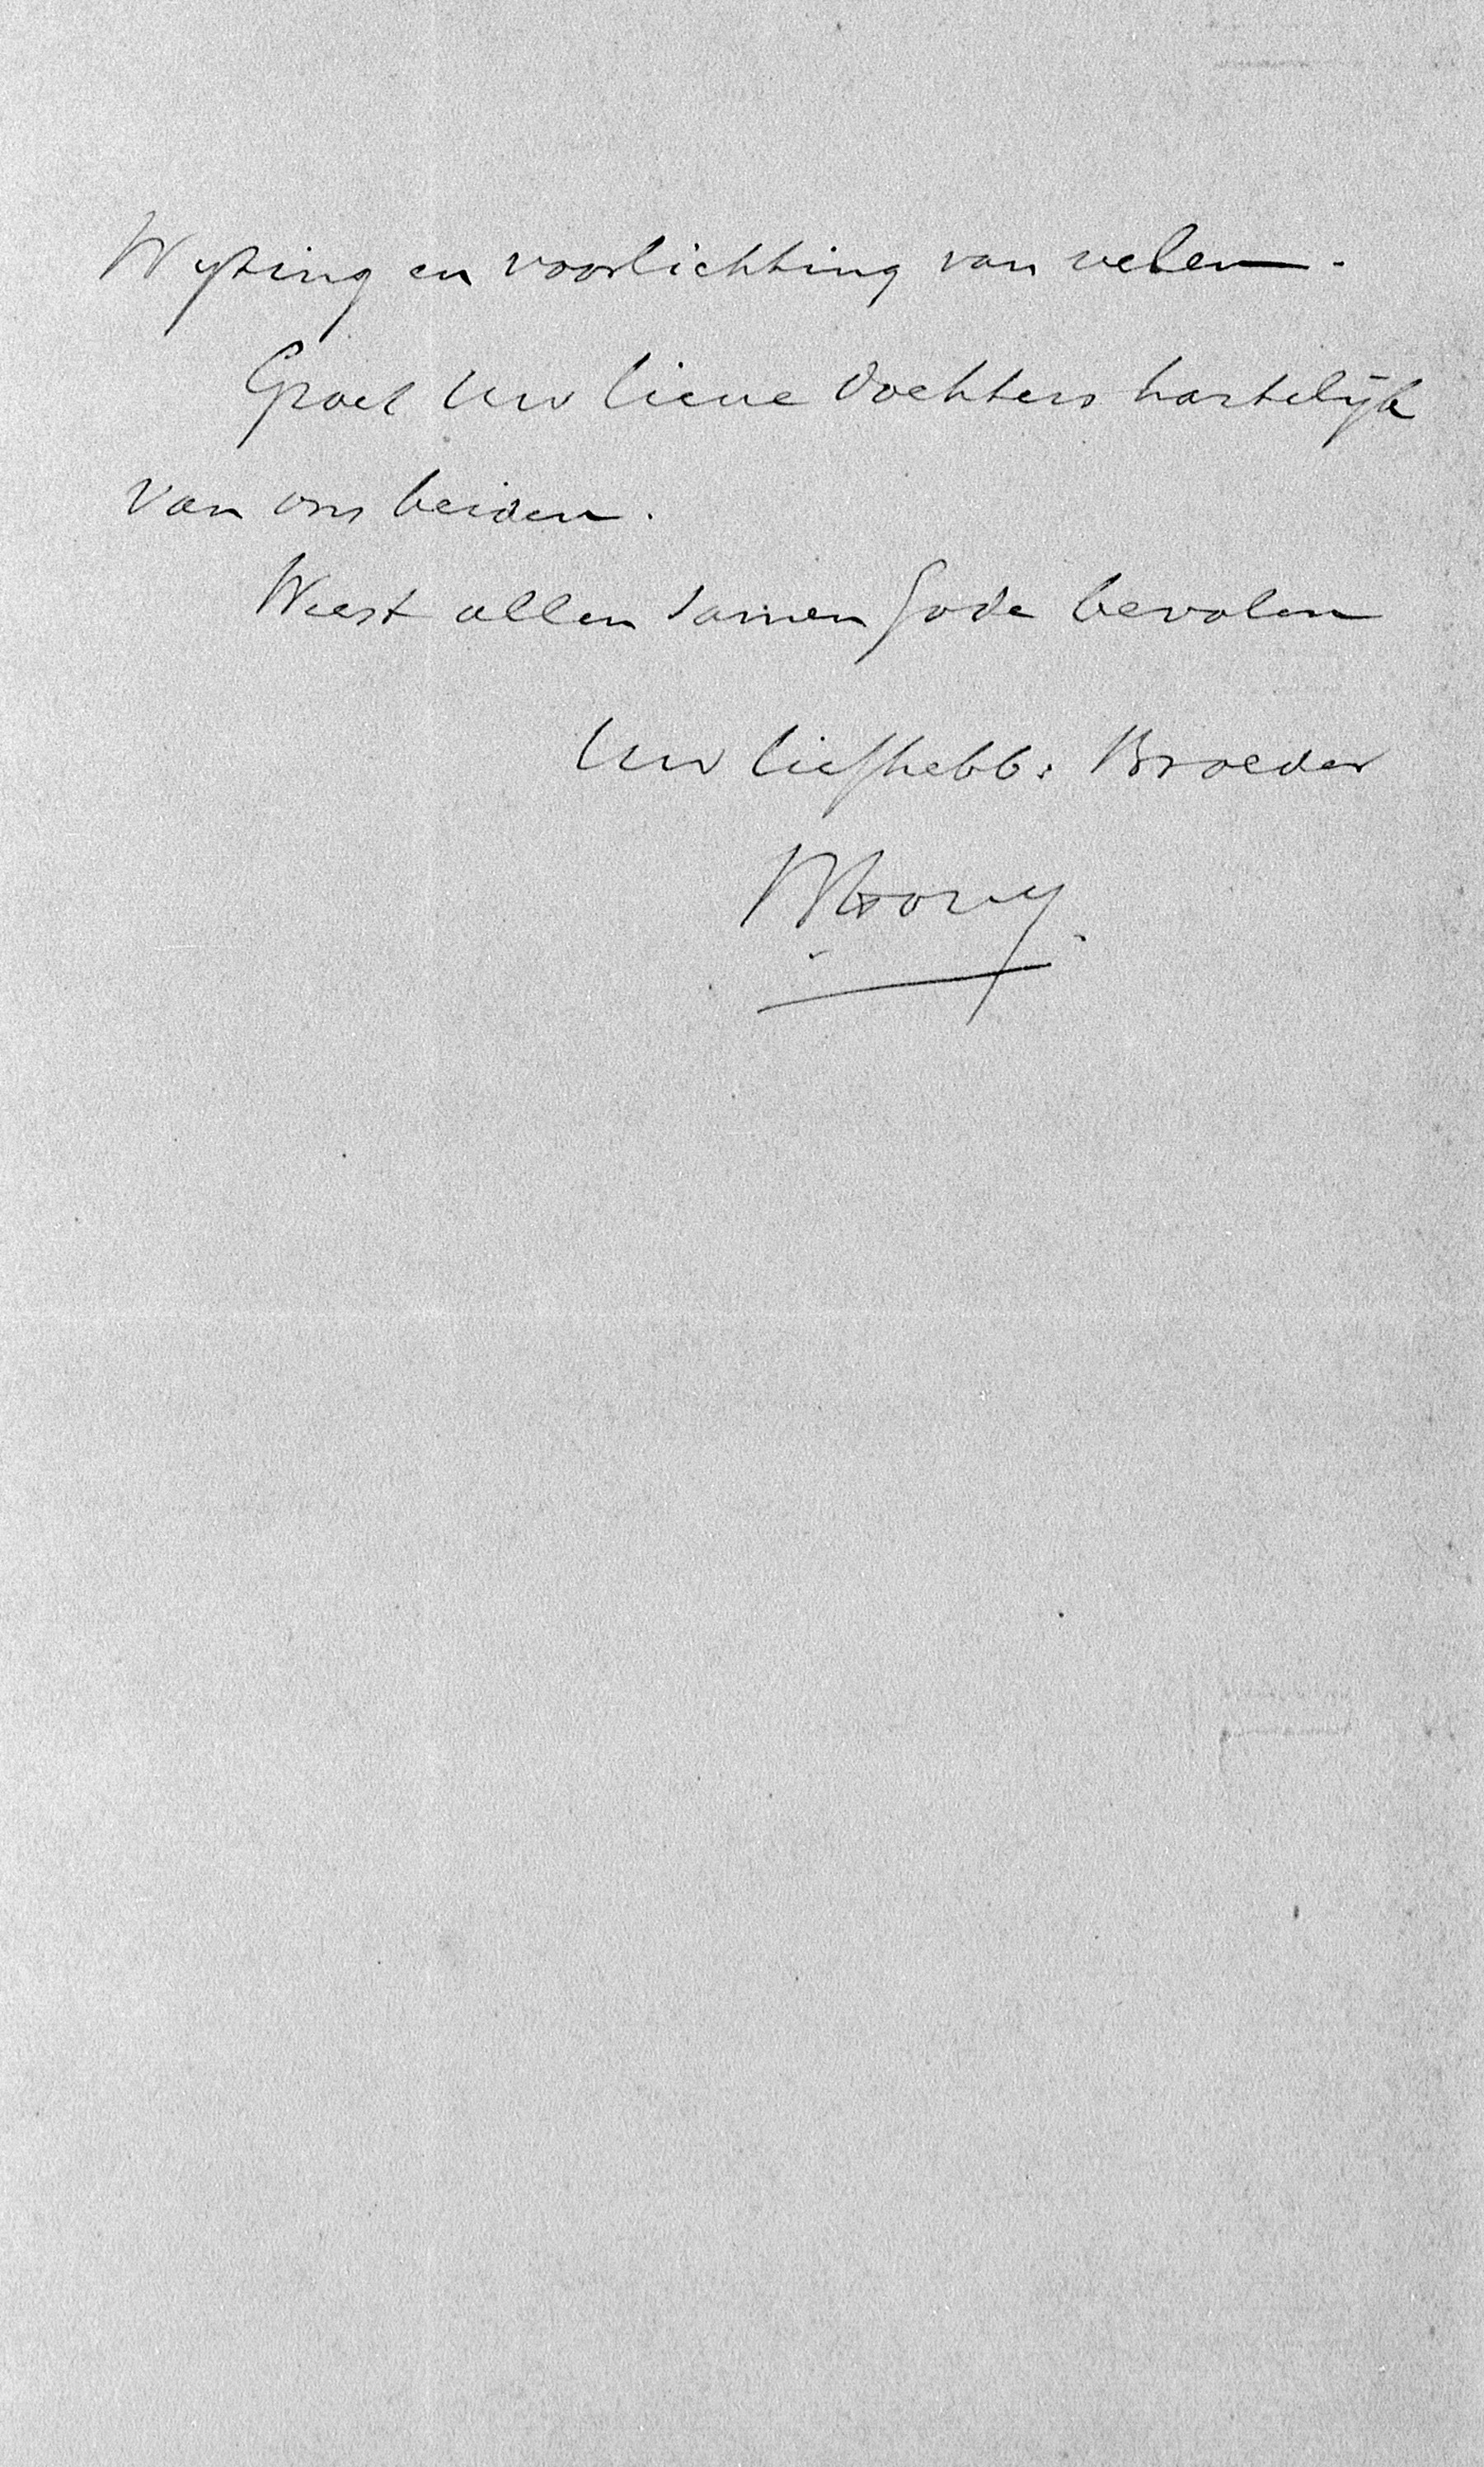 Wyzing en voorlichting van velen.
Groet Uw lieve dochters hartelijk
van ons beiden.
Weest allen samen Gode bevolen
Uw liefhebb: Broeder